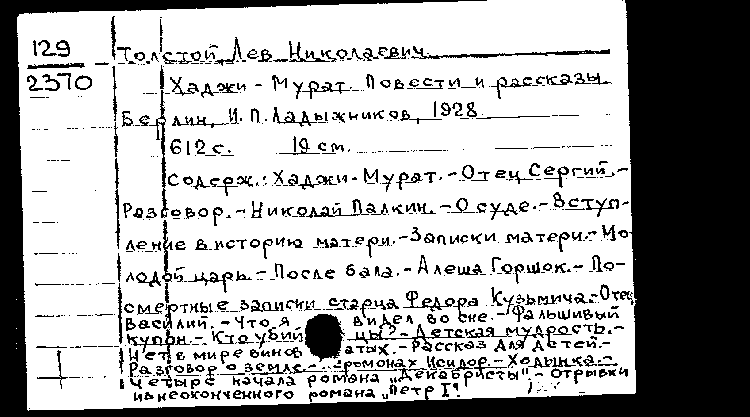 129
2370
Толстой, Лев Николаевич.
Хаджи-Мурат. Повести и рассказы.
Берлин, И.П.Ладыжников, 1928.
612 с. 19 см.
Содерж.: Хаджи-Мурат.-Отец Сергий.-
Разговор.-Николай Палкин.-О суде.-Вступ-
ление в историю матери.-Записки матери.-Мо-
лодой царь.-После бала.-Алеша Горшок.-По-
смертные записки старца Федора Кузьмича.-Отец
Василий.-Что я видел во сне.-Фальшивый
купон.-Кто убий цы?-Детская мудрость.-
Нет в мире винов атых.-Рассказ для детей.-
Разговор о земле.- ромонах Исидор.-Ходынка.-
Четыре начала романа „Декабристы".-Отрывки
из неоконченного романа „Петр I".